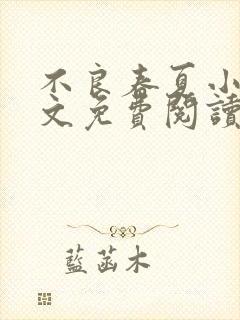 不良春夏小
文免費閱讀
藍菡木